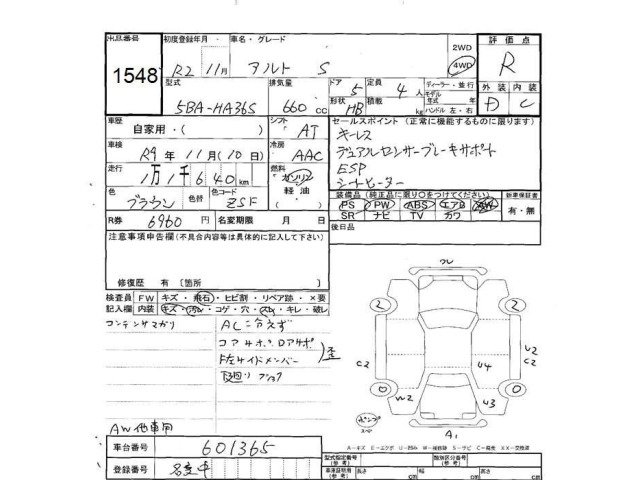 出品番号
1548
初度登録年月
R2 11月
車名・グレード
アルト S
2WD
4WD
評価点
R
型式
5BA-HA36S
排気量
660 cc
ドア
5
形状
HB
定員
4人
積載
kg
ディーラー・並行
モデル
年式 年
ハンドル 左・右
外装 内装
D C
車歴
自家用・( )
シフト
AT
セールスポイント (正常に機能するものに限ります)
キーレス
デュアルセンサーブレーキサポート
ESP
シートヒーター
車検
R9年 11月(10日)
冷房
AAC
走行
1万1千640km
燃料
ガソリン
軽油
( )
色
ブラウン
色替
色コード
ZSF
装備品 (純正品に限り○をつけてください)
PS PW ABS エアB AW
SR ナビ TV カワ
新車保証書
有・無
R券 6960 円
名変期限 月 日
後日品
注意事項申告欄(不具合内容等は具体的に記入して下さい)
修復歴 有 [箇所 ]
検査員記入欄
FW キズ・飛石・ヒビ割・リペア跡・×要
内装 キズ・汚れ・コゲ・穴・スレ・キレ・破レ
コンデンサマガリ
AC冷えず
コア4ポ.ロア4ポ
F左サイドメンバー
歪
AW他車用
ワレ
2 2
C2 U2
C2
U4
W2 U3
A1
車台番号 601365
登録番号 名変中
A－キズ E－エクボ U－凹み W－補修跡 S－サビ C－腐食 XX－交換済
型式指定番号
(参考)
類別区分番号
(参考)
車庫証明用
(参考)
長さ cm
幅 cm
高さ cm